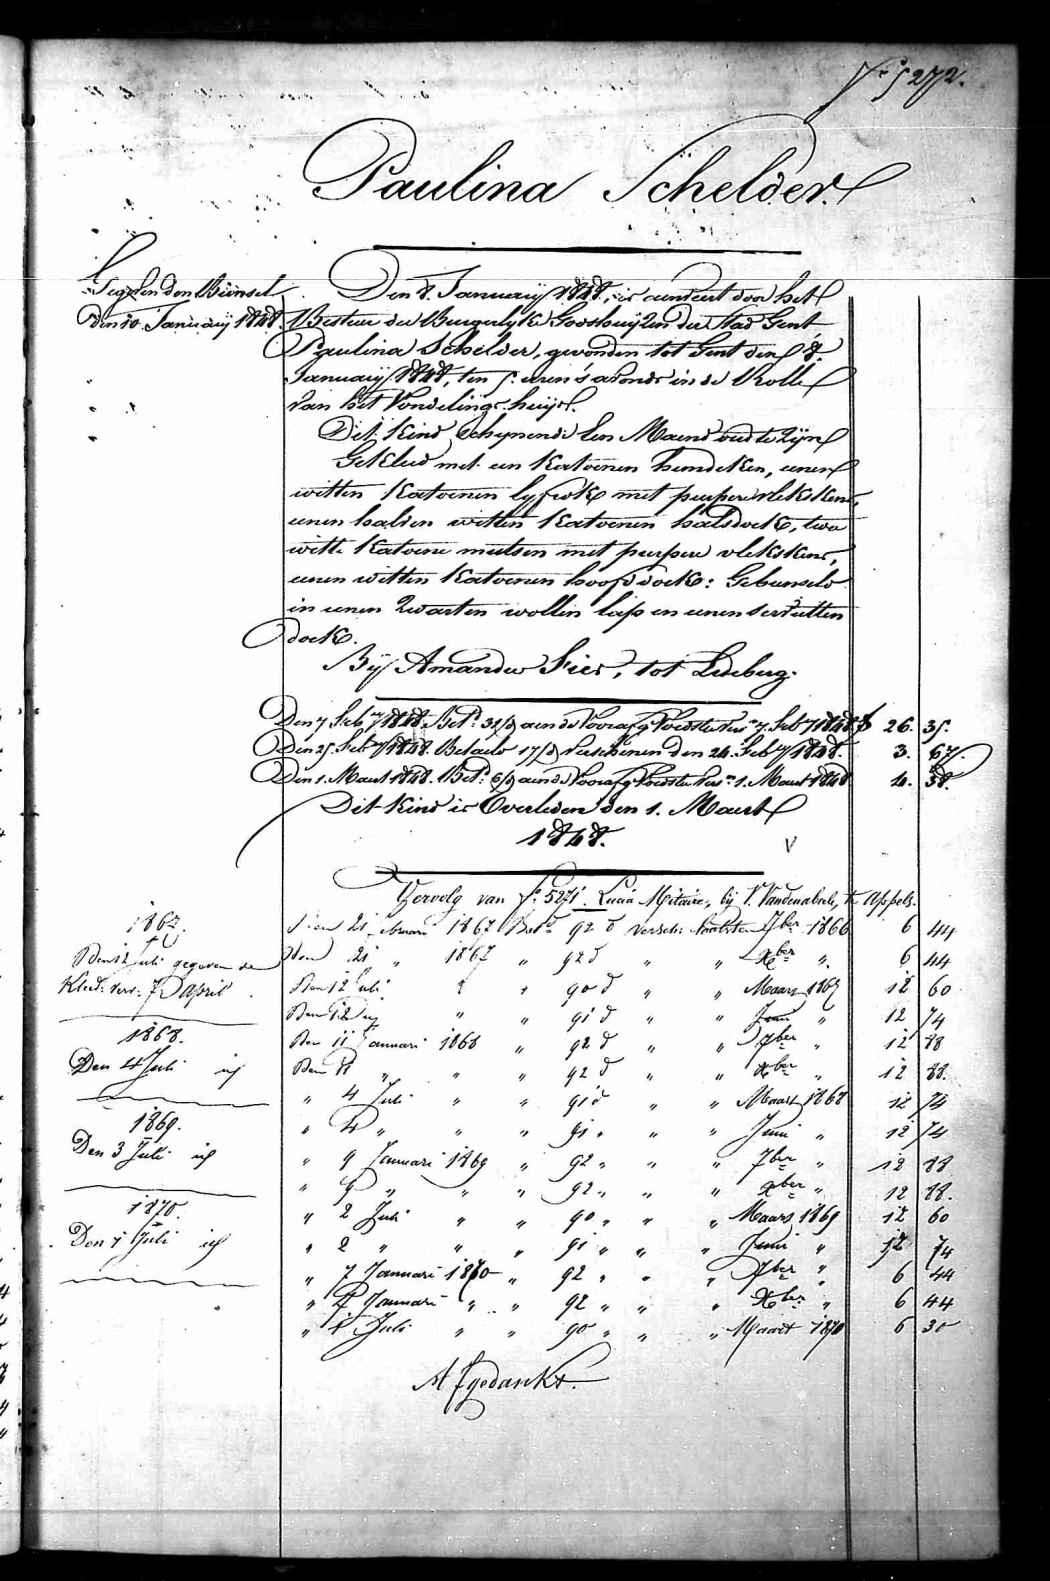 Fº 5272.
Paulina Schelder.
Gegeven den Bunsel
den 10. January 1848.
Den 8. January 1848, is aenveert door het
Bestuer der Burgerlyke Godshuyzen der Stad Gent
Paulina Schelder, gevonden tot Gent den 8.
January 1848, ten 5. uren 's avonds in de Rolle
van het Vondelings huys.
Dit Kind schynende een Maend oud te zyn
Gekleed met een Katoenen hemdeken, eenen
witten Katoenen lyfrok met purpere vlekskens,
eenen halven witten Katoenen halsdoek, twee
witte Katoene mutsen met purpere vlekskens,
eenen witten Katoenen hoofddoek: Gebunseld
in eenen Zwarten wollen lap en eenen servetten
doek.
By Amandus Fier, tot Ledeberg.
Den 7 Feby 1848. Betd. 31/d aen de Voorafg. Voedster Versn. 7. Feby 1848 f 26. 35.
Den 25. Feby 1848. Betaeld 17/d Verschenen den 24. Feby 1848. 3. 67.
Den 1. Maert 1848. Betd. 6/d aen de Voorafg. Voedster Versn. 1. Maert 1848 4. 38.
Dit Kind is Overleden den 1. Maert
1848.
V
Vervolg van Fº 5271. Lucia Mitaire, bij V. Vandenabeele, te Appels.
1867.
Den 12 Juli gegeven de
Kleed. vers. 7 April
1868.
Den 4 Juli id
1869.
Den 3 Juli id
1870.
Den 7 Juli id
Den 21 Januari 1867 Betd. 92 d Versch. 7ber 1866 6 44
Den 21 " 1867 " 92 d " " Xber " 6 44
Den 12 Juli " " 90 d " " Maart 1867 12 60
Den 12 " " " 91 d " " Juni " 12 74
Den 11 Januari 1868 " 92 d " " 7ber " 12 88
Den 11 " " " 92 d " " Xber " 12 88.
" 4 Juli " " 91 d " " Maart 1868 12 74
" 4 " " " 91 " " " Juni " 12 74
" 9 Januari 1869 " 92 " " " 7ber " 12 88
" 9 " " " 92 " " " Xber " 12 88.
" 2 Juli " " 90 " " " Maart 1869 12 60
" 2 " " " 91 " " " Juni " 12 74
" 7 Januari 1870 " 92 " " " 7ber " 6 44
" 7 Januari " " 92 " " " Xber " 6 44
" 1 Juli " " 90 " " " Maart 1870 6 30
Afgedankt.